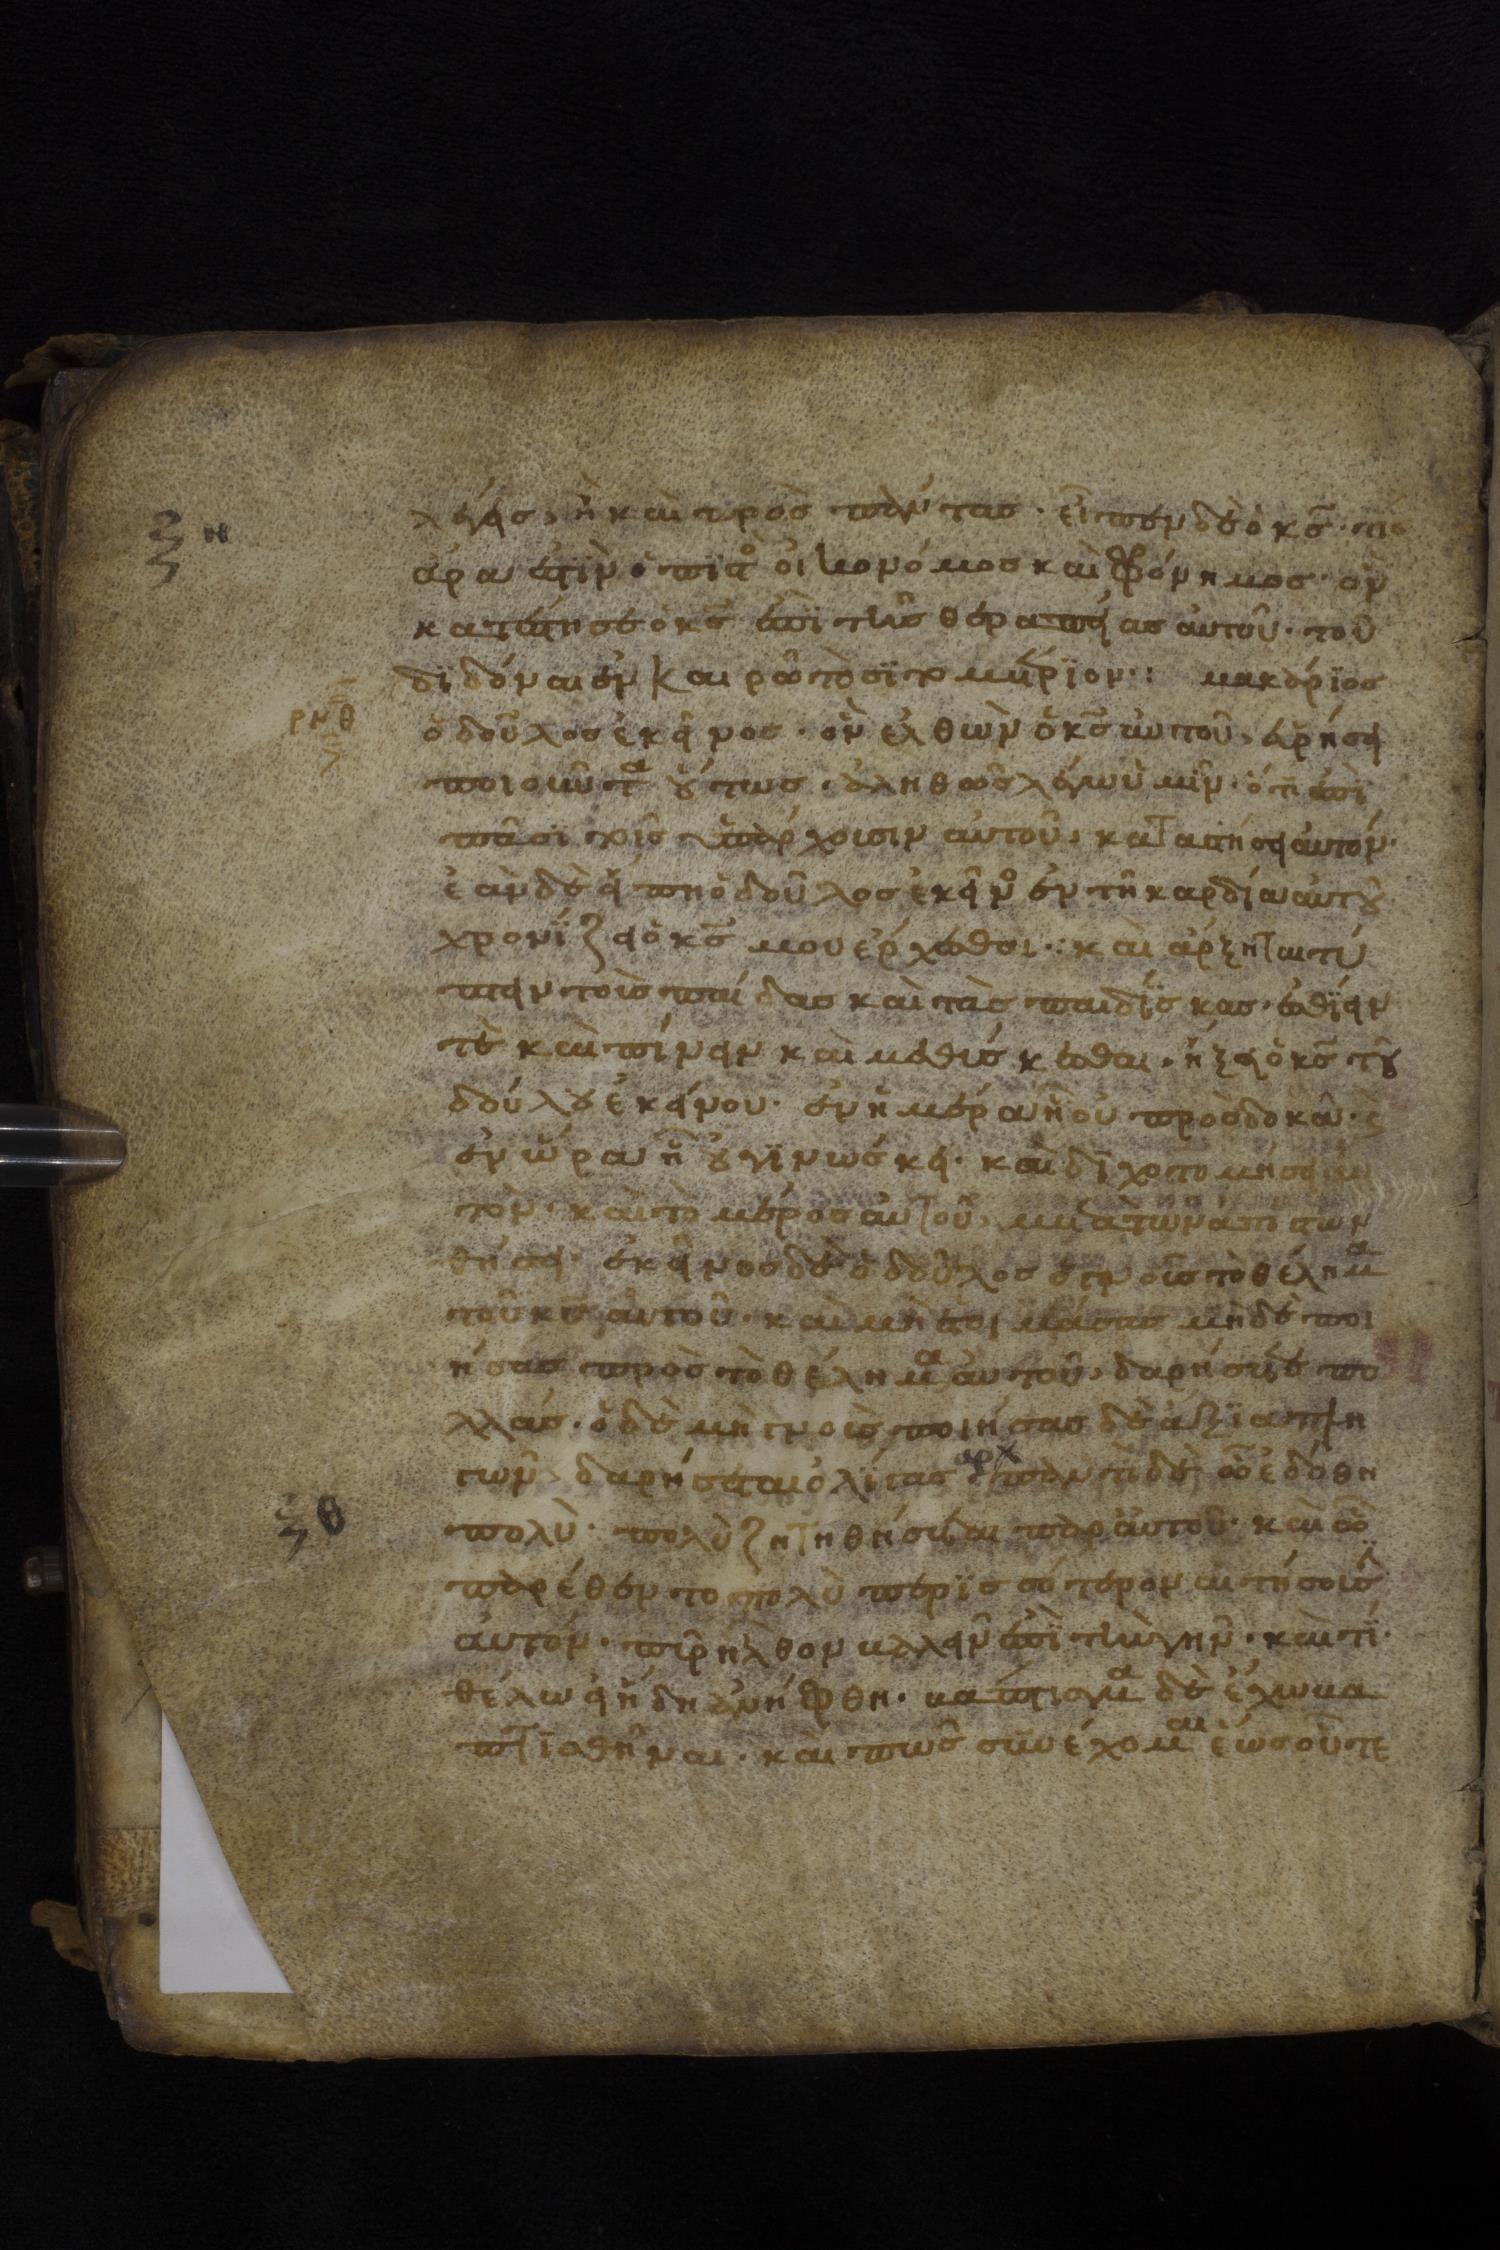 ξη
λέγεις, ἢ καὶ πρὸς πάντας· εἶπεν δὲ ὁ κς· τίς
ἄρα ἐστὶν ὁ πιστὸς οἰκονόμος καὶ φρόνημος· ὃν
καταστήσει ὁ κς ἐπὶ τῆς θεραπείας αὐτοῦ· τοῦ
διδόναι ἐν καιρῶ τὸ σιτομέτριον·: μακάριος
ρνθ
ὁ δοῦλος ἐκεῖνος· ὃν ἐλθὼν ὁ κς αὐτοῦ, εὑρήσει
ποιοῦντα οὕτως· ἀληθῶς λέγω ὑμῖν· ὅτι ἐπὶ
πᾶσι τοῖς ὑπάρχουσιν αὐτοῦ, καταστήσει αὐτόν·
ἐὰν δὲ εἴπη ὁ δοῦλος ἐκεῖνος ἐν τῆ καρδία αὐτοῦ
χρονίζει ὁ κς μου ἔρχεσθαι·: καὶ ἄρξηται τύ
πτειν τοὺς παίδας καὶ τὰς παιδίσκας· ἐσθίειν
τὲ καὶ πίνειν καὶ μεθύσκεσθαι, ἥξει ὁ κς τοῦ
δούλου ἐκείνου· ἐν ἡμέρα ἧ οὐ προσδοκᾶ· καὶ
ἐν ὥρα ἧ οὐ γινώσκει· καὶ διχοτομήσει αὐ
τὸν· καὶ τὸ μέρος αὐτοῦ, μετὰ τῶν ἀπίστων
θήσει· ἐκεῖνος δὲ ὁ δοῦλος ὁ γνοὺς τὸ θέλημα
τοῦ κυ αὐτοῦ· καὶ μὴ ἑτοιμάσας μηδὲ ποι
ήσας πρὸς τὸ θέλημα αὐτοῦ, δαρήσεται πο
λλάς· ὁ δὲ μὴ γνοὺς ποιήσας δὲ ἄξια πλη
γῶν, δαρήσεται ὀλίγας· αρχ παντὶ δὲ ὧ ἐδόθη
ξθ
πολὺ· πολὺ ζητηθήσεται παρ αὐτοῦ· καὶ ὧ
παρέθεντο πολὺ περισσότερον αἰτήσουσι
αὐτόν· πῦρ ἦλθον βαλλεῖν ἐπὶ τὴν γῆν· καὶ τί
θέλω εἰ ἤδη ἀνήφθη· βάπτισμα δὲ ἔχω βα
πτισθῆναι· καὶ πῶς συνέχομαι ἕως οὗ τε